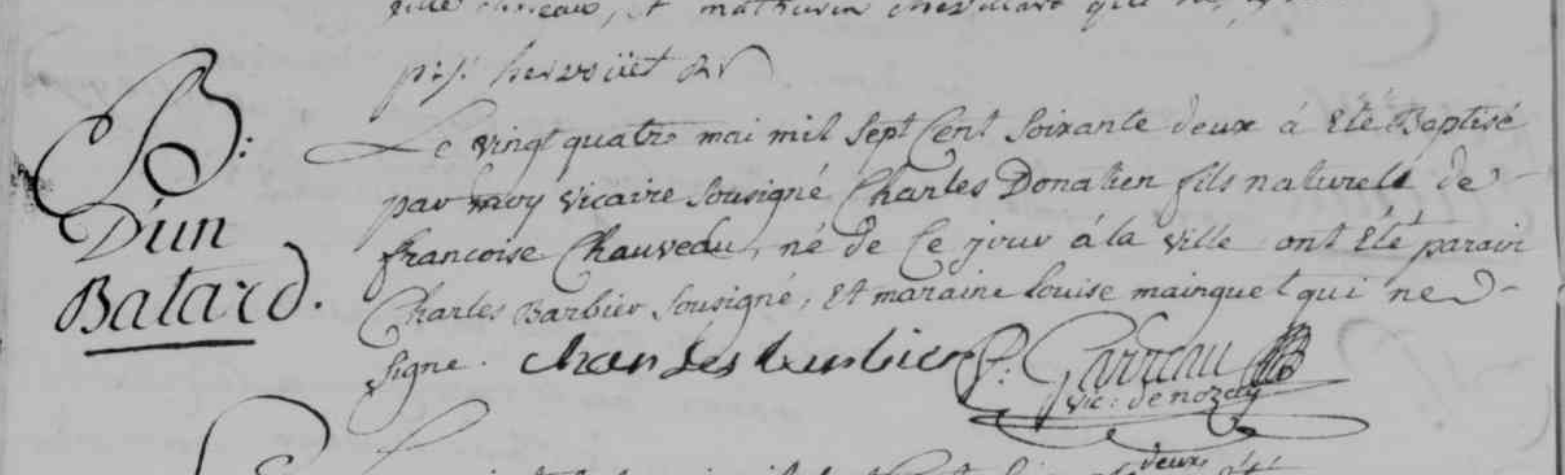 et mathurin qui ne
B:
D'un
Batard.
Le vingt quatre mai mil sept Cent soixante deux á été Baptisé
par moy vicaire sousigné Charles Donatien fils naturel de
francoise Chauveau, né de Ce jour á la ville ont été parain
Charles Barbier sousigné, Et maraine louise mainguet qui ne
signe. charles barbier P: Garreau
vic: de nozay
deux